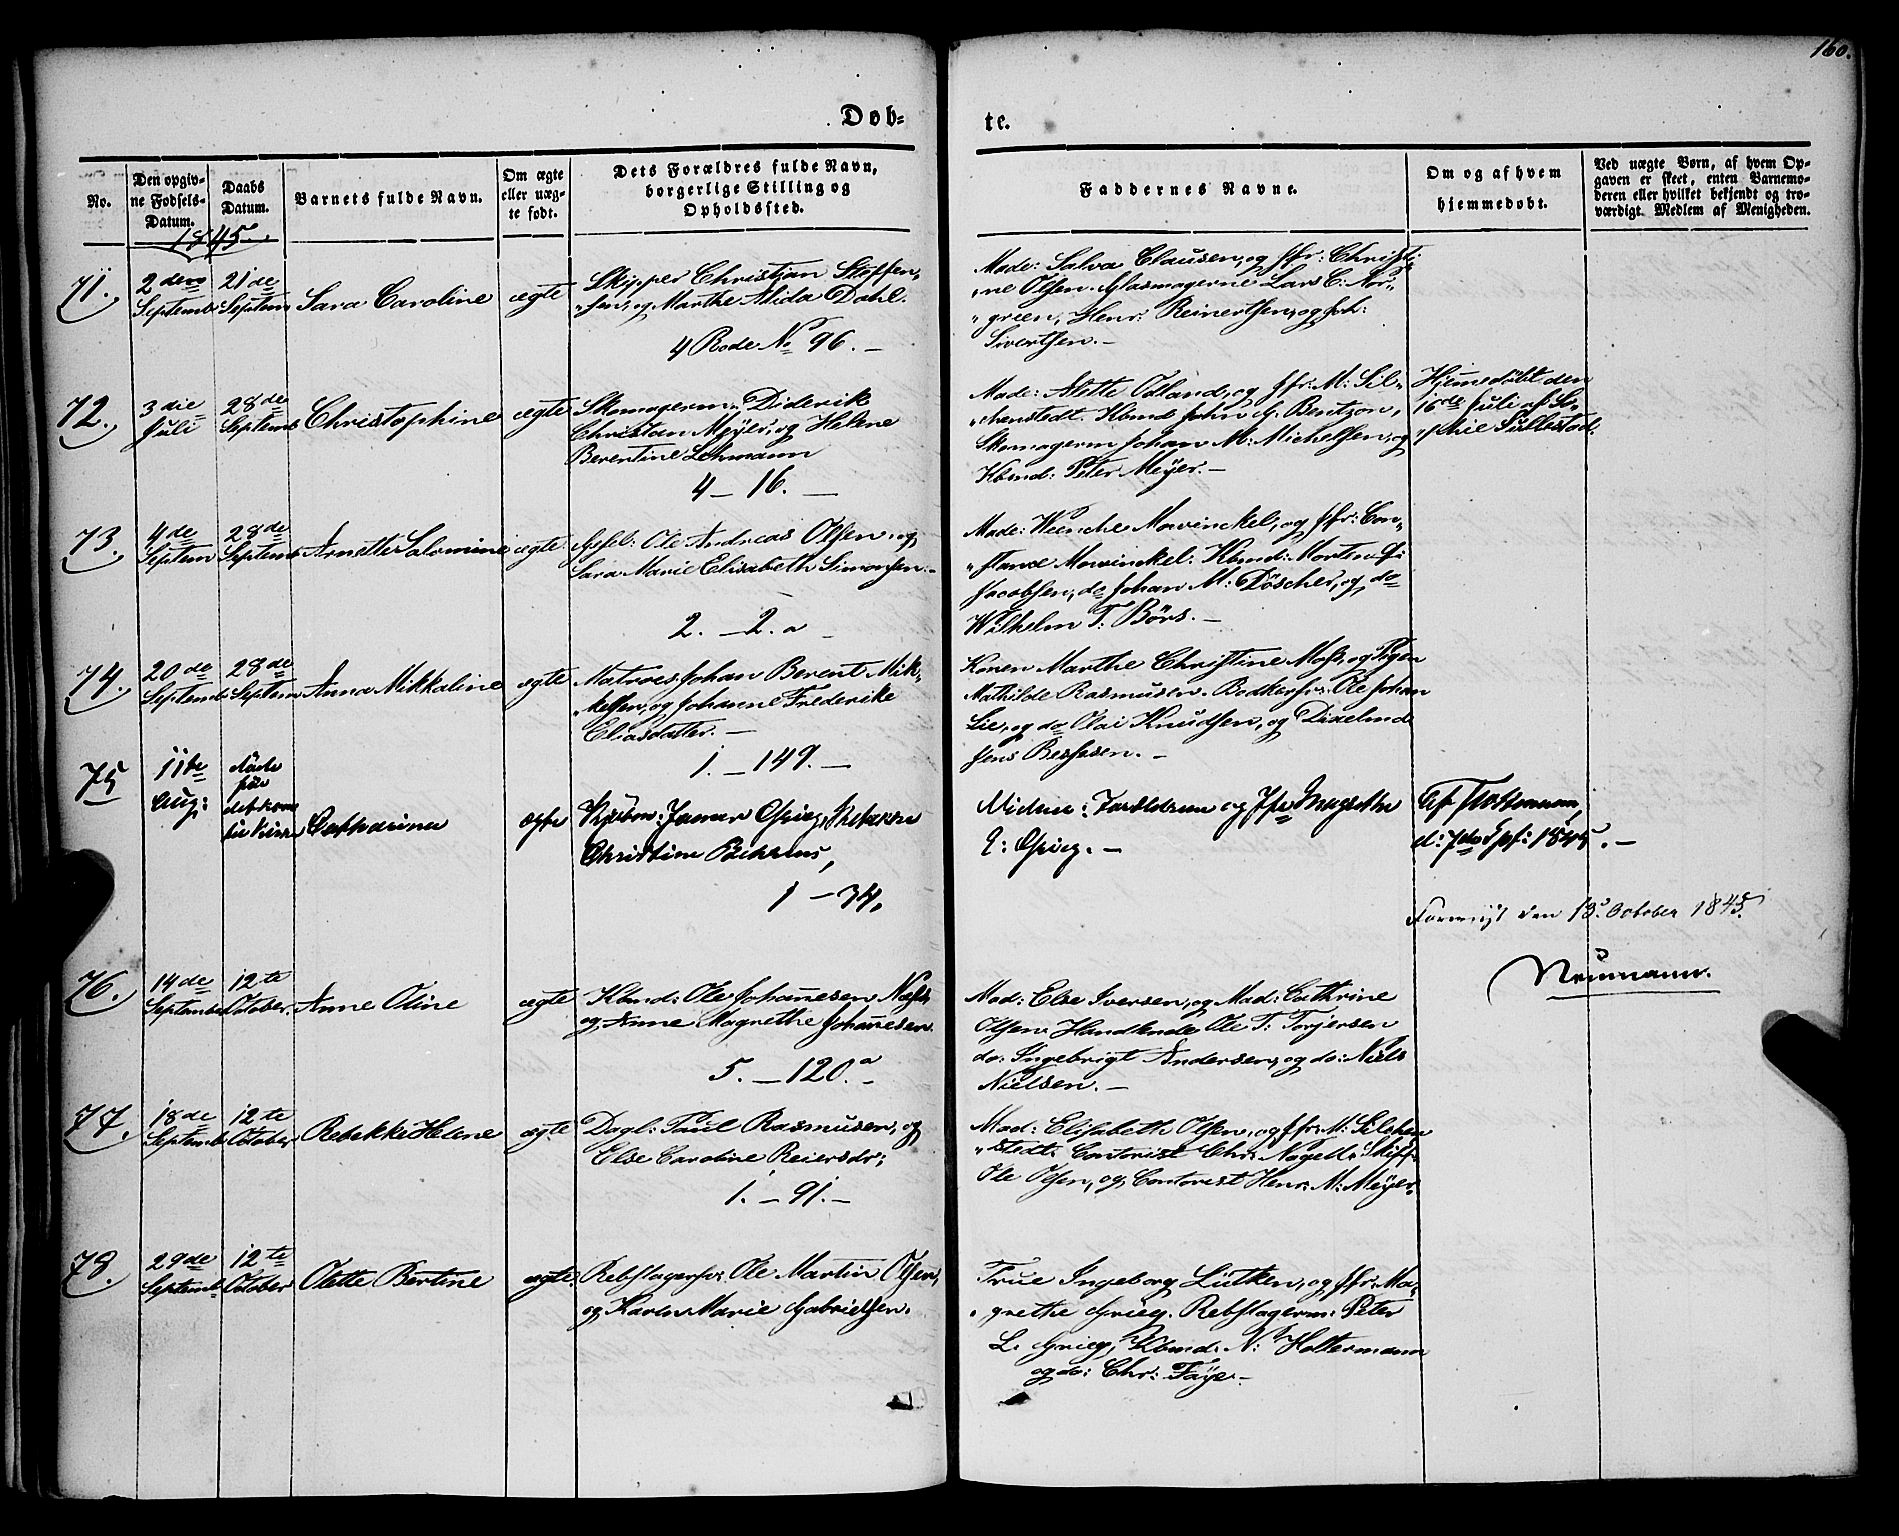 160.
Døb=
te.
No.
Den opgiv-
ne Fødsels-
Datum.
Daabs
Datum.
Barnets fulde Navn.
Om ægte
eller uæg-
te født.
Dets Forældres fulde Navn,
borgerlige Stilling og
Opholdssted.
Faddernes Navne.
Om og af hvem
hjemmedøbt.
Ved uægte Børn, af hvem Op-
gaven er skeet, enten Barnemo-
deren eller hvilket bekjendt og tro-
værdigt Medlem af Menigheden.
1845
71.
2den
Septemb
21de
Septem
Sara Caroline
ægte
Skipper Christian Steffen,
"sen, og Marthe Alida Dahl.
4 Rode No 96. —
Made: Salva Clausen, og Jfr: Christi-
"ne Olsen. Glasmagerne Lars C. Nor-
"green, Henr: Reinertsen, og Joh:
Sivertsen. —
72.
3die
Juli
28de
Septemb
Christophine
ægte
Skomagerm: Diderik
Christian Meyer, og Helene
Berentine Lehmann
4 — 16. —
Made: Alette Odland, og Jfr: M: Sil-
"chenstedt. Kbmd John G. Bentzon,
Skomagerm Johan M: Michelsen, og
Kbmd: Peter Meyer. —
Hjemedøbt den
16de Juli af So-
"phie Sullestad.
73.
4de
Septem
28de
Septemb
Annette Salomine
ægte
Gesel: Ole Andreas Olsen, og
Sara Marie Elisabeth Simonsen. —
2. — 2. a —
Made: Wenche Mowinckel, og Jfr: Con-
"stance Mowinckel. Kbmd: Morten
Jacobsen, do Johan M: Döscher, og do
Wilhelm T: Börs. —
74.
20de
Septemb
28de
Septem
Anna Mikkaline
ægte
Matros Johan Berent Mik-
"kelsen, og Johanne Frederike
Eliasdatter. —
1. — 149. —
Konen Marthe Christine Moss, og Pigen
Mathilde Rasmusen. Bødkersv: Ole Johan
Lie, og do Olai Knudsen, og
Jens
75
11te
Aug:
Catharina
ægte
Kjøbm: Grieg,
Christine Behrens,
1 — 34.
og Jfr Magrethe
Grieg. —
1845. —
den 13 October 1845.
Neumann.
76.
14de
Septemb
12te
October.
Anne Oline
ægte
Kbmd: Ole Johanesen Næss,
og Anne Magrethe Johanesen.
5. — 120. a —
Mad: Else Iversen, og Mad: Cathrine
Olsen. Handlende Ole T: Torjersen
do: Ingebrigt Andersen, og do: Niels
Nielsen. —
77.
18de
Septemb
12te
October
Rebekke Helene
ægte
Dagl: Poul Rasmusen, og
Else Caroline Reiersdr:
1. — 91. —
Mad: Elisabeth Olsen, og Jfr: M: Silchen
"stedt. Contorist Chr: Nagell. Skipp.
Ole Olsen, og Contorist Henr: M: Meyer.
78.
29de
Septemb
12te
October
Olette Bertine
ægte
Rebslagersv: Ole Martin Olsen,
og Karen Marie Gabrielsen.
Frue Ingeborg Lütken, og Jfr: Ma-
"grethe Grieg. Rebslagerm: Peter
L. Grieg, Kbmd: N: Holtermann
og do: Chr: Faye —